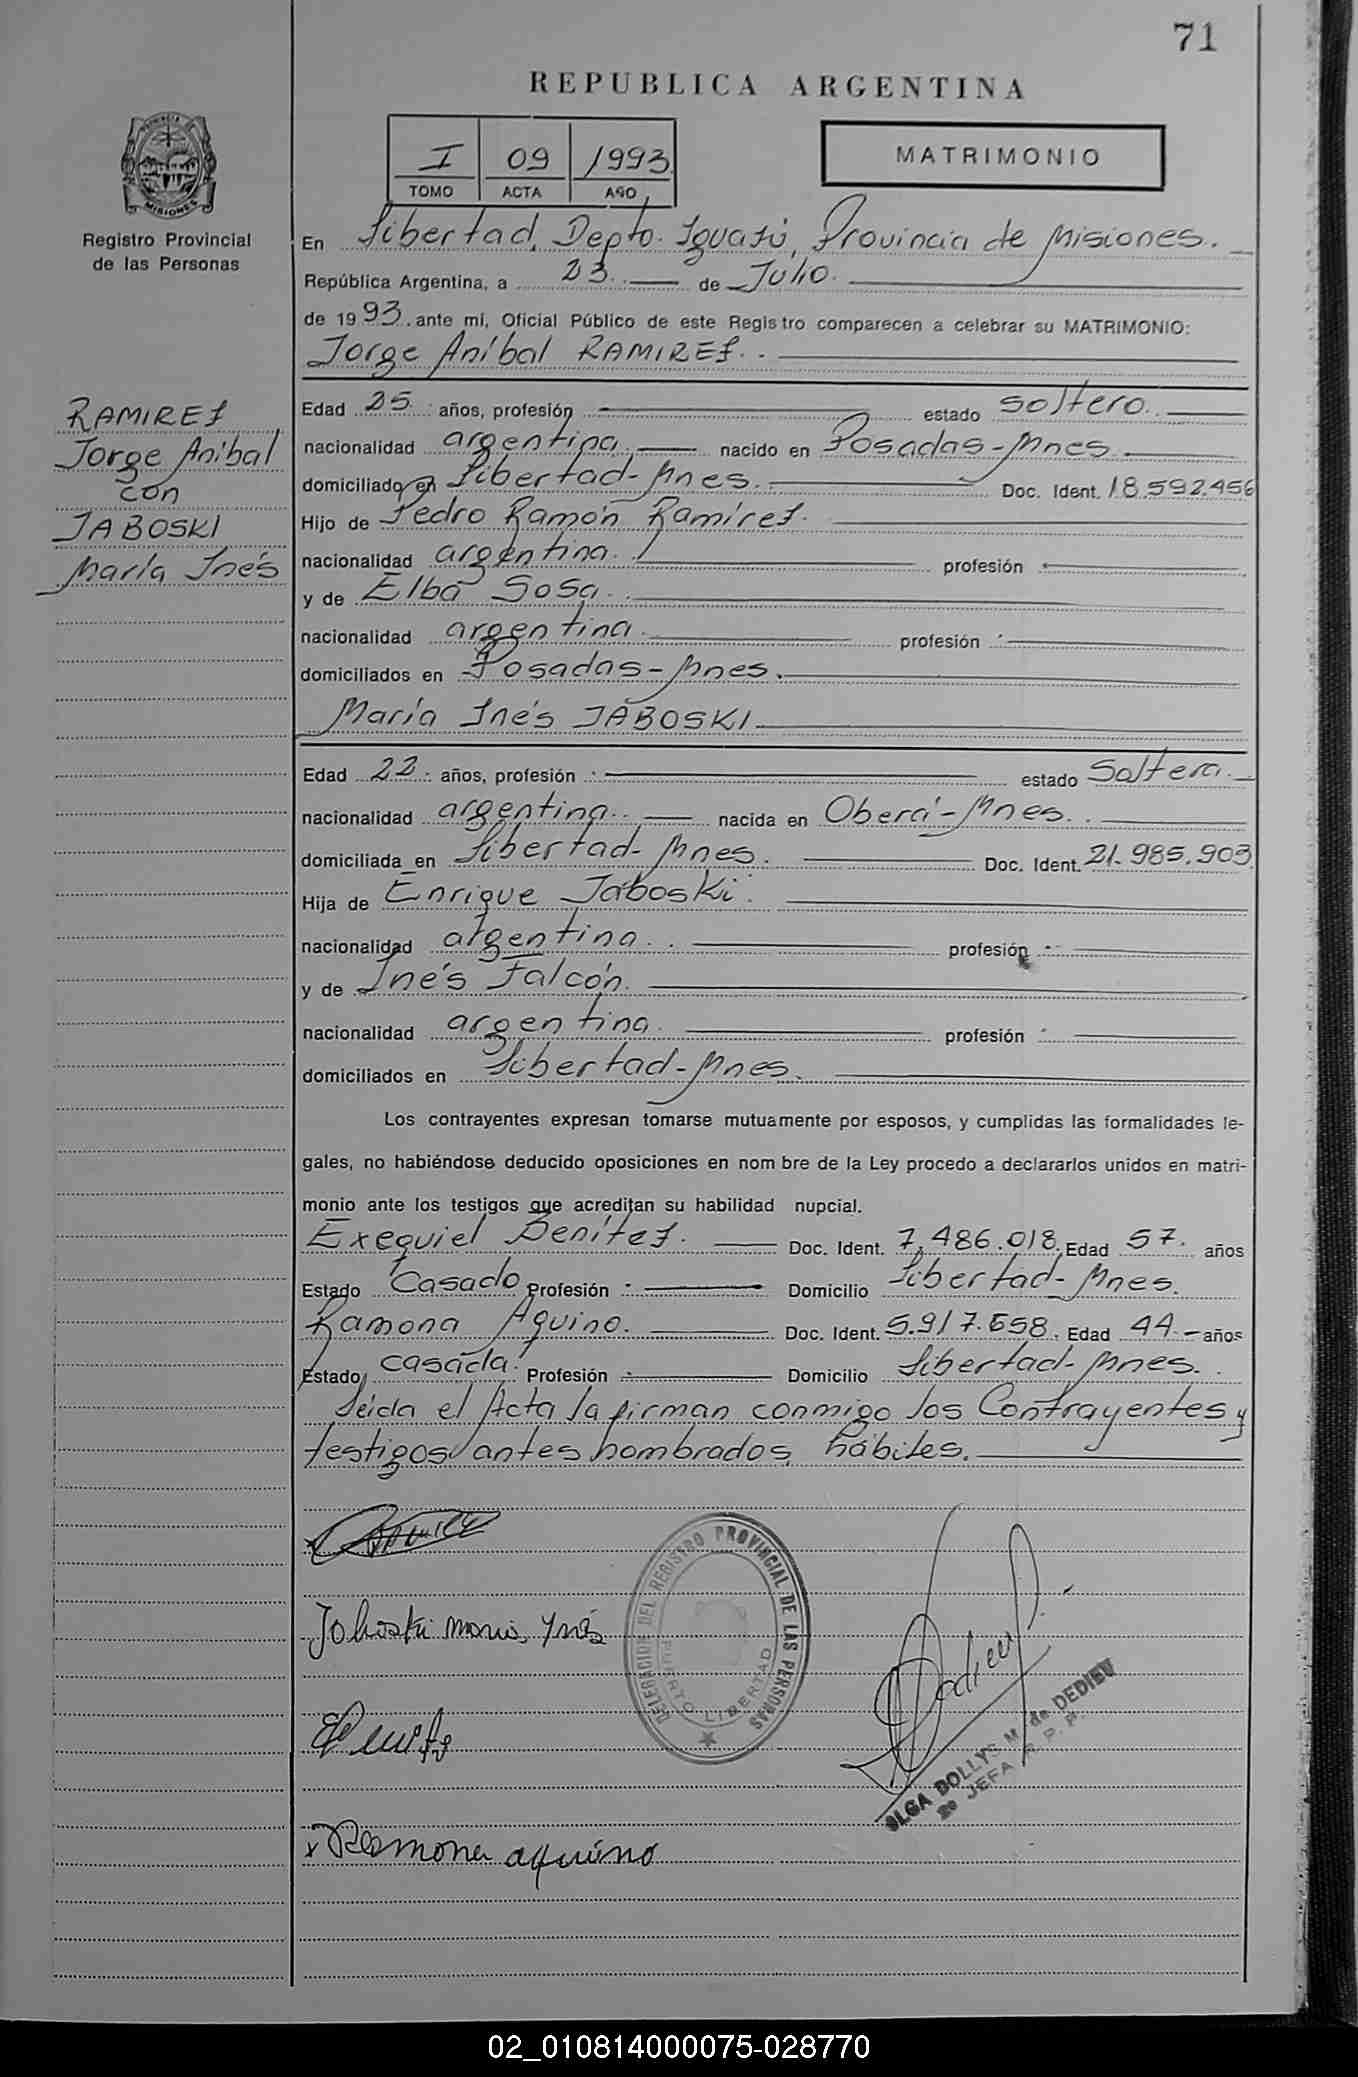 71
REPUBLICA ARGENTINA
I 09 1993
TOMO ACTA AÑO
MATRIMONIO
MISIONES
Registro Provincial
de las Personas
En Libertad, Depto. Iguazú, Provincia de Misiones.
República Argentina, a 23 de Julio
de 1993. ante mí, Oficial Público de este Registro comparecen a celebrar su MATRIMONIO:
Jorge Aníbal RAMIREZ.
RAMIREZ
Jorge Aníbal
con
JABOSKI
María Inés
Edad 25 años, profesión estado soltero.
nacionalidad argentina. nacido en Posadas-Mnes.
domiciliado en Libertad-Mnes. Doc. Ident. 18.592.456
Hijo de Pedro Ramón Ramírez.
nacionalidad argentina. profesión
y de Elba Sosa.
nacionalidad argentina. profesión
domiciliados en Posadas-Mnes.
María Inés JABOSKI
Edad 22 años, profesión estado Soltera.
nacionalidad argentina. nacida en Oberá-Mnes.
domiciliada en Libertad-Mnes. Doc. Ident. 21.985.903
Hija de Enrique Jaboski.
nacionalidad argentina. profesión
y de Inés Falcón.
nacionalidad argentina. profesión
domiciliados en Libertad-Mnes.
Los contrayentes expresan tomarse mutuamente por esposos, y cumplidas las formalidades le-
gales, no habiéndose deducido oposiciones en nombre de la Ley procedo a declararlos unidos en matri-
monio ante los testigos que acreditan su habilidad nupcial.
Exequiel Benítez. Doc. Ident. 7.486.018. Edad 57. años
Estado Casado Profesión Domicilio Libertad-Mnes.
Ramona Aquino. Doc. Ident. 5.917.658. Edad 44.- años
Estado casada. Profesión Domicilio Libertad-Mnes.
Leída el Acta la firman conmigo los Contrayentes y
testigos antes nombrados, hábiles.
DELEGACION DEL REGISTRO PROVINCIAL DE LAS PERSONAS
PUERTO LIBERTAD
Jaboski Maria Ynés
Dedieu
OLGA DOLLYS M. de DEDIEU
JEFA R. P. P.
x Ramona aquino
02_010814000075-028770